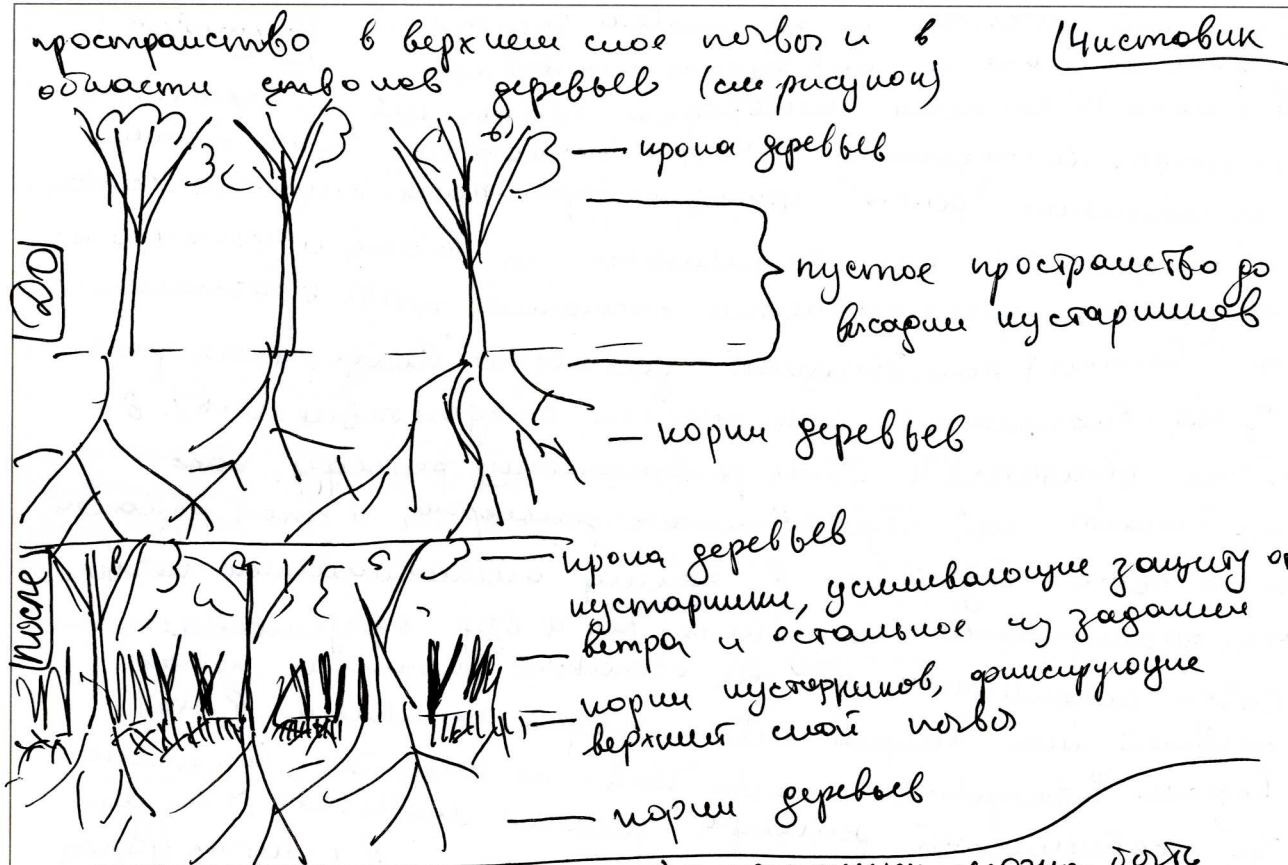 пространство в верхнем слое почвы и в
Чистовик
области стволов деревьев (см рисунок)
крона деревьев
До
пустое пространство до
высадки кустарников
корни деревьев
После
крона деревьев
кустарники, усиливающие защиту от
ветра и остальное из задания
корни кустарников, фиксирующие
верхний слой почвы
корни деревьев